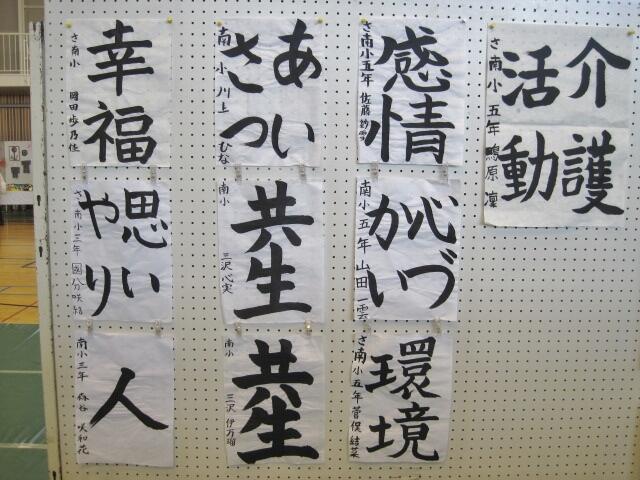 介護
活動
さ南小 五年 鴫原 凜
感情
さ南小五年 佐藤
心づ
かい
南小五年 山田 一雲
環境
さ南小五年 菅俣 結菜
あい
さつ
南小 川上 ひな
共生
南小 三沢 心実
共生
南小 三沢 伊万瑠
幸福
さ南小 岡田 歩乃佳
思い
やり
さ南小三年 國分 咲結
人
南小三年 森谷 咲和花